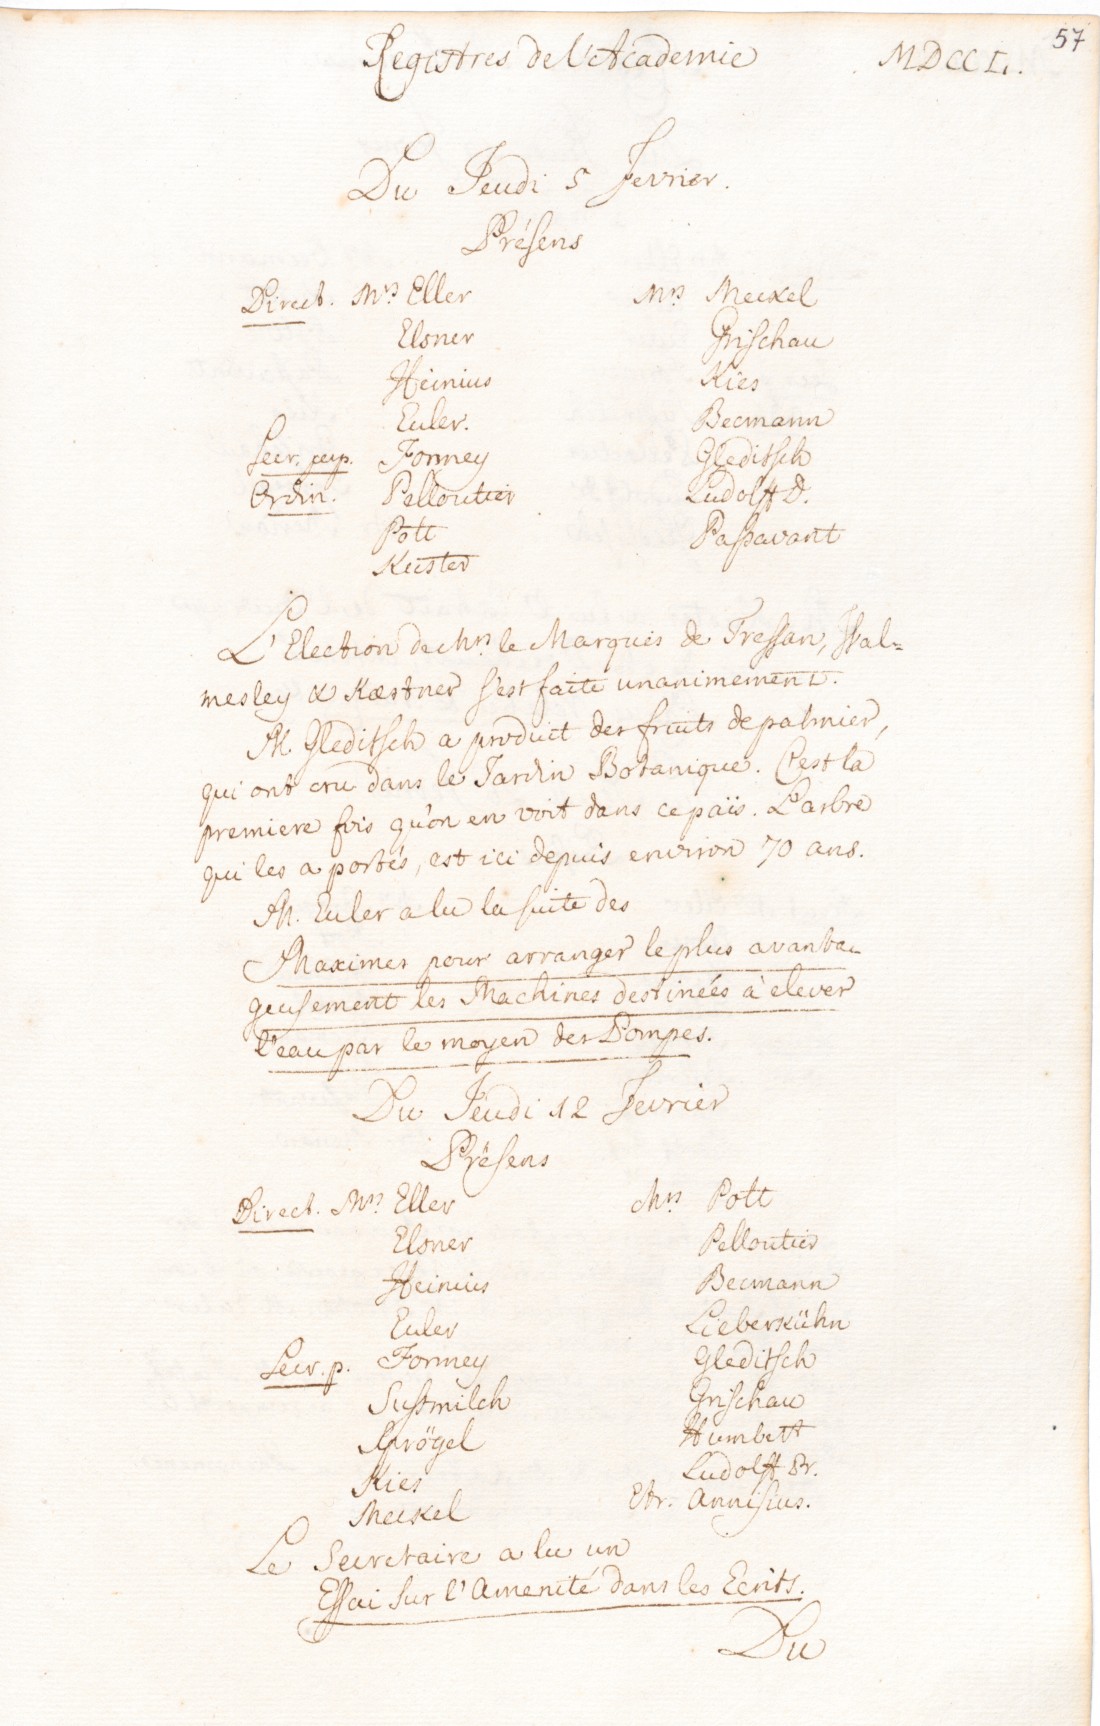 57
Registres de l'Academie MDCCL.
Du Jeudi 5 Fevrier.
Présens
Direct. Mrs Eller
Elsner
Heinius
Euler.
Secr. perp. Formey
Ordin. Pelloutier
Pott
Küster
Mrs Meckel
Grischau
Kies
Becmann
Gleditsch
Ludolff D.
Passavant
L'Election de Mrs le Marquis de Tressan, Wal=
mesley & Kæstner s'est faite unanimement.
M. Gleditsch a produit des fruits de palmier,
qui ont cru dans le Jardin Botanique. C'est la
premiere fois qu'on en voit dans ce païs. L'arbre
qui les a portés, est ici depuis environ 70 ans.
M. Euler a lu la suite des
Maximes pour arranger le plus avanta-
geusement les Machines destinées à elever
l'eau par le moyen des Pompes.
Du Jeudi 12 Fevrier
Présens
Direct. Mrs Eller
Elsner
Heinius
Euler
Secr. p. Formey
Sussmilch
Sprögel
Kies
Meckel
Mrs Pott
Pelloutier
Becmann
Lieberkühn
Gleditsch
Grischau
Humbert
Ludolff Pr.
Etr. Annisius.
Le Secretaire a lu un
Essai sur l'Amenité dans les Ecrits.
Du